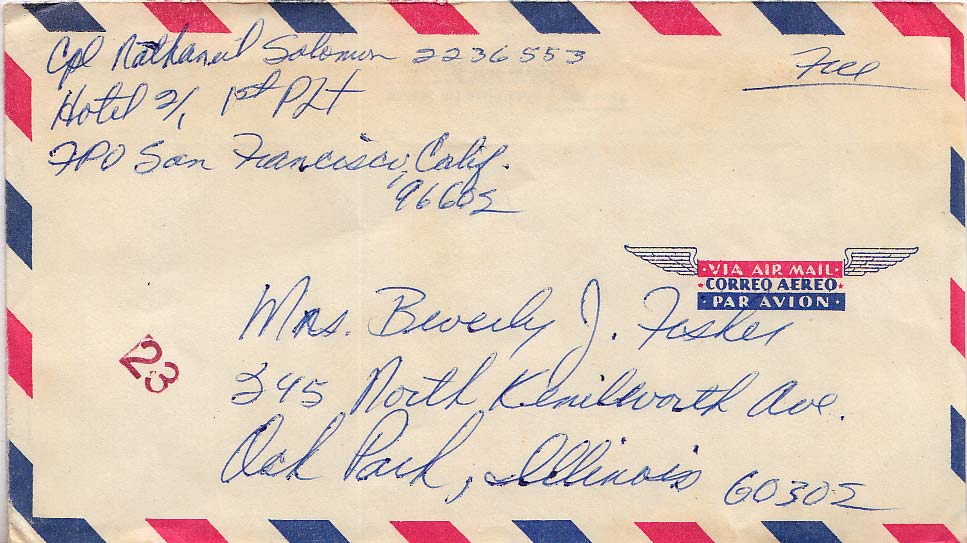 Cpl Nathaniel Solomon 2236553
Free
Hotel 2/1, 1st Plt
FPO San Francisco, Calif.
96602
VIA AIR MAIL
CORREO AEREO
PAR AVION
Mrs. Beverly J. Fosher
345 North Kenilworth Ave.
Oak Park, Illinois 60302
23